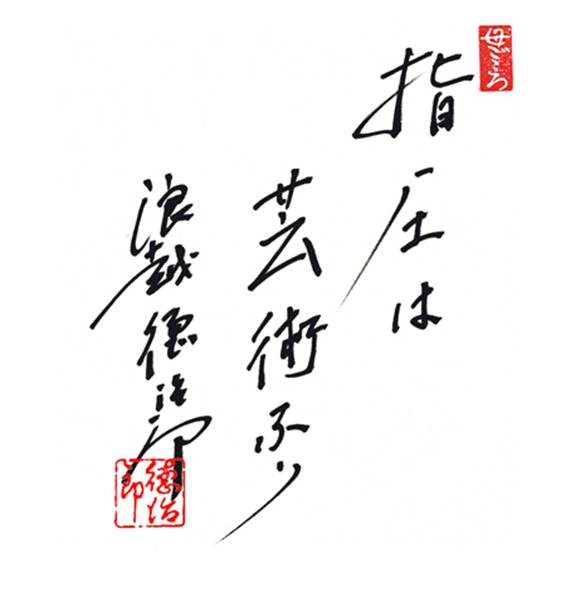 母ごころ
指圧は
芸術なり
浪越徳治郎
徳治郎